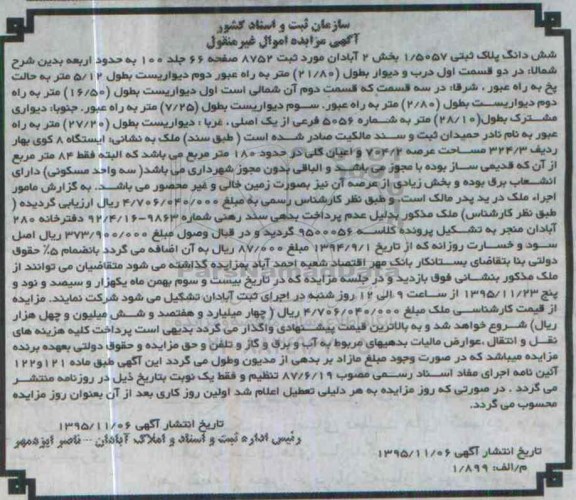 سازمان ثبت و اسناد کشور
آگهی مزایده اموال غیرمنقول
شش دانگ پلاک ثبتی ۱/۵۰۵۷ بخش ۲ آبادان مورد ثبت ۸۷۵۲ صفحه ۶۶ جلد ۱۰۰ به حدود اربعه بدین شرح
شمالا: در دو قسمت اول درب و دیوار بطول (۲۱/۸۰) متر به راه عبور دوم دیواریست بطول ۵/۱۲ متر به حالت
پخ به راه عبور ، شرقا: در سه قسمت که قسمت دوم آن شمالی است اول دیواریست بطول (۱۶/۵۰) متر به راه
دوم دیواریست بطول (۲/۸۰) متر به راه عبور. سوم دیواریست بطول (۷/۲۵) متر به راه عبور. جنوبا: دیواری
مشترک بطول(۲۸/۱۰) متر به شماره ۵۰۵۶ فرعی از یک اصلی ، غربا : دیواریست بطول (۲۷/۲۰) متر به راه
عبور به نام نادر حمیدان ثبت و سند مالکیت صادر شده است ( طبق سند) ملک به نشانی: ایستگاه ۸ کوی بهار
ردیف ۳۲۴/۳ مساحت عرصه ۷۰۴/۲ و اعیان کلی در حدود ۱۸۰ متر مربع می باشد که البته فقط ۸۴ متر مربع
از آن که قدیمی ساز بوده با مجوز می باشد و الباقی بدون مجوز شهرداری می باشد( سه واحد مسکونی) دارای
انشعاب برق بوده و بخش زیادی از عرصه آن نیز بصورت زمین خالی و غیر محصور می باشد. به گزارش مامور
اجراء ملک در ید پدر مالک است . و طبق نظر کارشناس رسمی به مبلغ ۴/۷۰۶/۰۴۰/۰۰۰ ریال ارزیابی گردیده (
طبق نظر کارشناس) ملک مذکور بدلیل عدم پرداخت بدهی سند رهنی شماره ۹۸۶۳-۹۲/۴/۱۶ دفترخانه ۲۸۰
آبادان منجر به تشکیل پرونده کلاسه ۹۵۰۰۰۵۶ گردید و در قبال وصول مبلغ ۳۷۳/۹۰۰/۰۰۰ ریال اصل
سود و خسارت روزانه که از تاریخ ۱۳۹۴/۹/۱ مبلغ ۸۷/۰۰۰ ریال به آن اضافه می گردد بانضمام ۵٪ حقوق
دولتی بنا بتقاضای بستانکار بانک مهر اقتصاد شعبه احمد آباد بمزایده گذاشته می شود متقاضیان می توانند از
ملک مذکور بنشانی فوق بازدید و در جلسه مزایده که در تاریخ بیست و سوم بهمن ماه یکهزار و سیصد و نود و
پنج ۱۳۹۵/۱۱/۲۳ از ساعت ۹ الی ۱۲ روز شنبه در اجرای ثبت آبادان تشکیل می شود شرکت نمایند. مزایده
از قیمت کارشناسی ملک مبلغ ۴/۷۰۶/۰۴۰/۰۰۰ ریال ( چهار میلیارد و هفتصد و شش میلیون و چهل هزار
ریال) شروع خواهد شد و به بالاترین قیمت پیشنهادی واگذار می گردد بدیهی است پرداخت کلیه هزینه های
نقل و انتقال ،عوارض مالیات بدهیهای مربوط به آب وبرق و گاز و تلفن و حق مزایده و حقوق دولتی بعهده برنده
مزایده میباشد که در صورت وجود مبلغ مازاد بر بدهی از مدیون وصول می گردد این آگهی طبق ماده ۱۲۱و۱۲۲
آئین نامه اجرای مفاد اسناد رسمی مصوب ۸۷/۶/۱۹ تنظیم و فقط یک نوبت بتاریخ ذیل در روزنامه منتشر
می گردد . در صورتی که روز مزایده به هر دلیلی تعطیل اعلام شد اولین روز کاری بعد از آن بعنوان روز مزایده
محسوب می گردد.
تاریخ انتشار آگهی ۱۳۹۵/۱۱/۰۶
رئیس اداره ثبت و اسناد و املاک آبادان ... ناصر ایزدمهر
تاریخ انتشار آگهی ۱۳۹۵/۱۱/۰۶
م/الف: ۱/۸۹۹
ParsNamadData